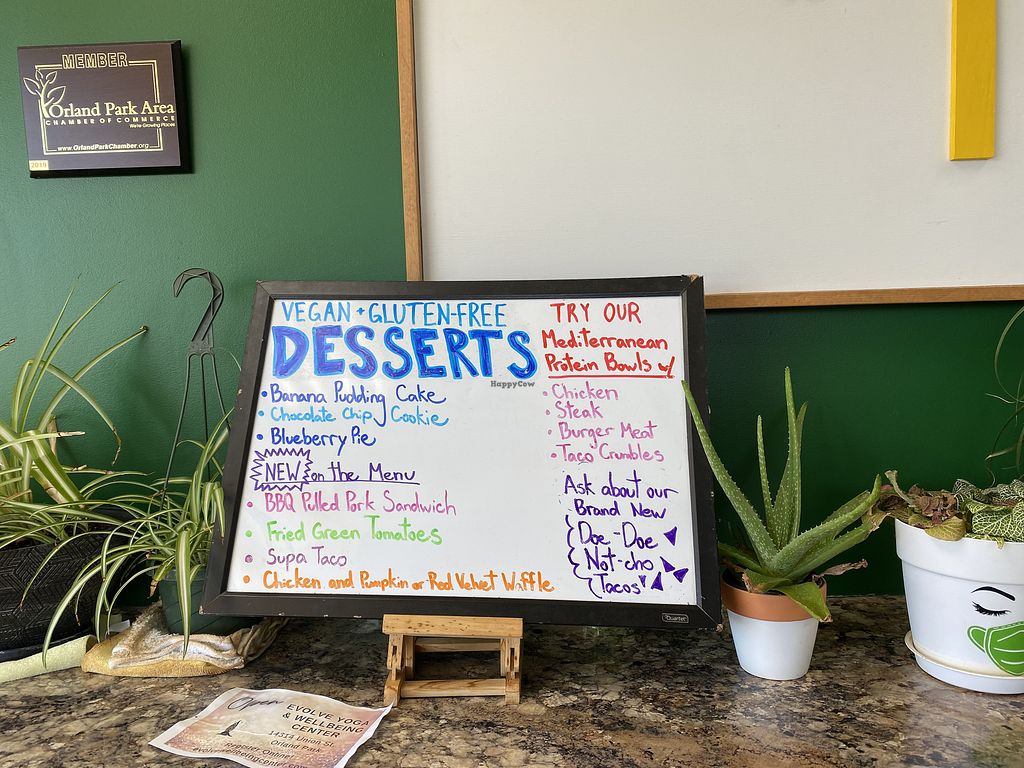 MEMBER
Orland Park Area
CHAMBER OF COMMERCE
We're Growing Places
www.OrlandParkChamber.org
2019
VEGAN + GLUTEN-FREE
DESSERTS
• Banana Pudding Cake
• Chocolate Chip Cookie
• Blueberry Pie
NEW on the Menu
• BBQ Pulled Pork Sandwich
• Fried Green Tomatoes
• Supa Taco
• Chicken and Pumpkin or Red Velvet Waffle
TRY OUR
Mediterranean
Protein Bowls w/
• Chicken
• Steak
• Burger Meat
• Taco Crumbles
Ask about our
Brand New
Doe-Doe
Not-cho
Tacos
HappyCow
Quartet
Open
EVOLVE YOGA
& WELLBEING
CENTER
14314 Union St.
Orland Park
Register Online!